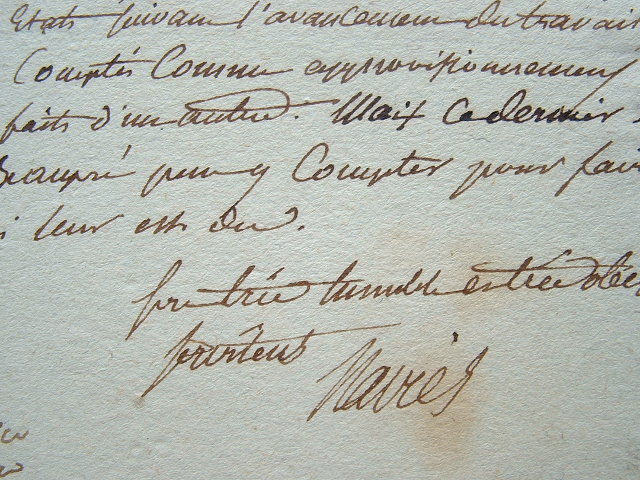 États suivant l'avancement du travail
Comptés Comme approvisionnement
faits d'un autre. Mais Ce dernier
pour y Compter pour fai
i leur est du.
très humble et très obéi
Navier